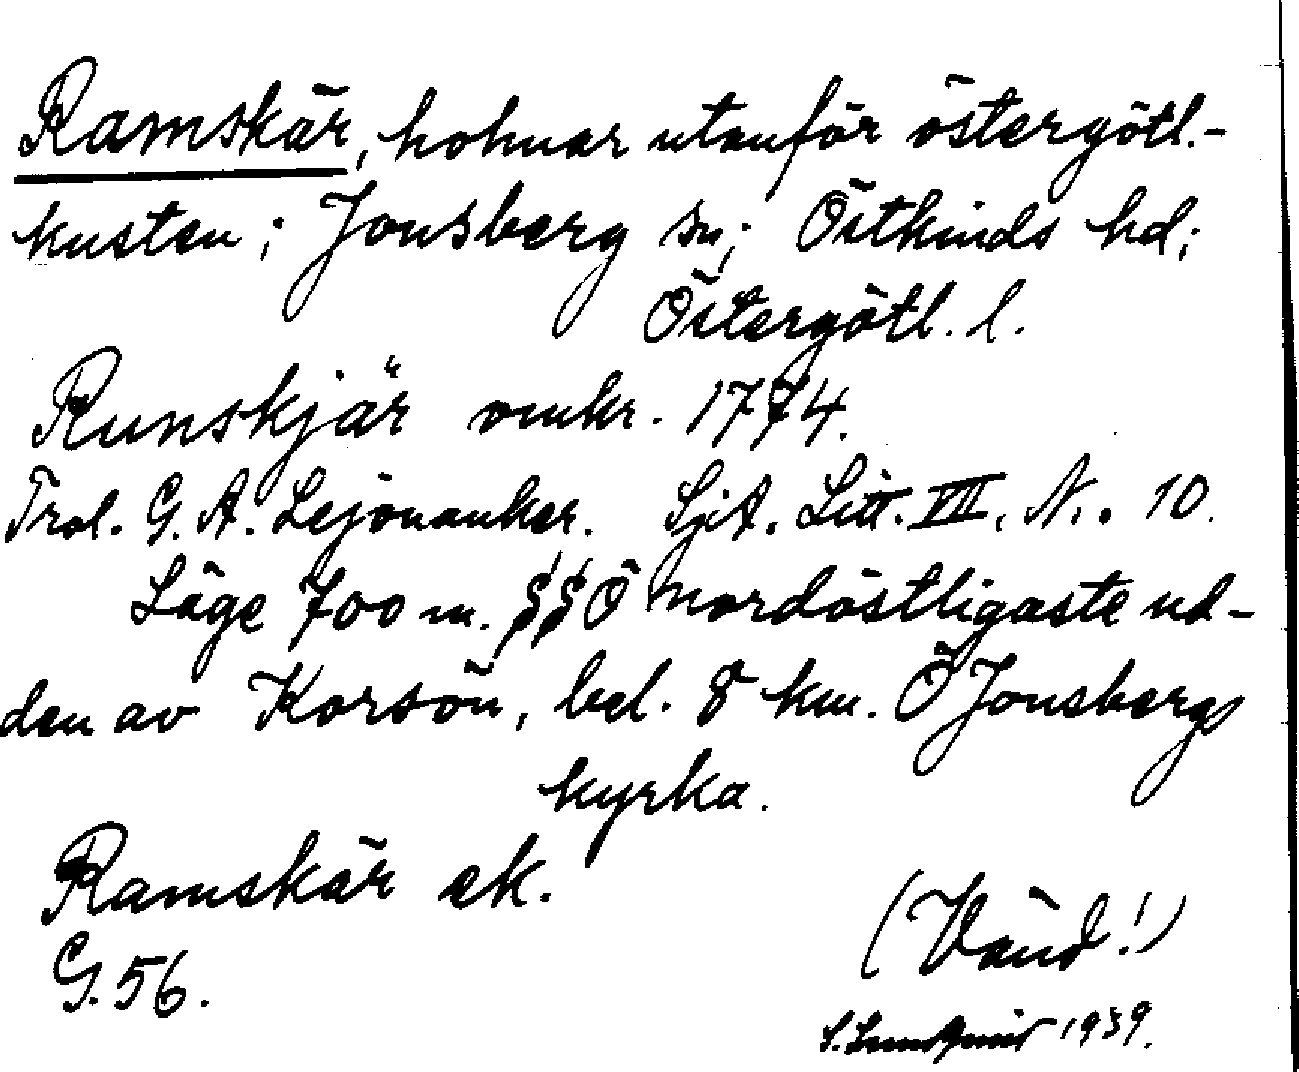 Ramskär, holmar utanför östergötl.-
kusten; Jonsberg sn; Östkinds hd;
Östergötl. l.
Runskjär omkr. 1774.
Trol. G. A. Lejonanker. SjA. Litt. VII. N. 10.
Läge 700 m. SSÖ nordöstligaste ud-
den av Korsön, bel. 8 km. Ö Jonsbergs
kyrka.
Ramskär ek.
G. 56.
(Vänd!)
S. Lundquist 1939.